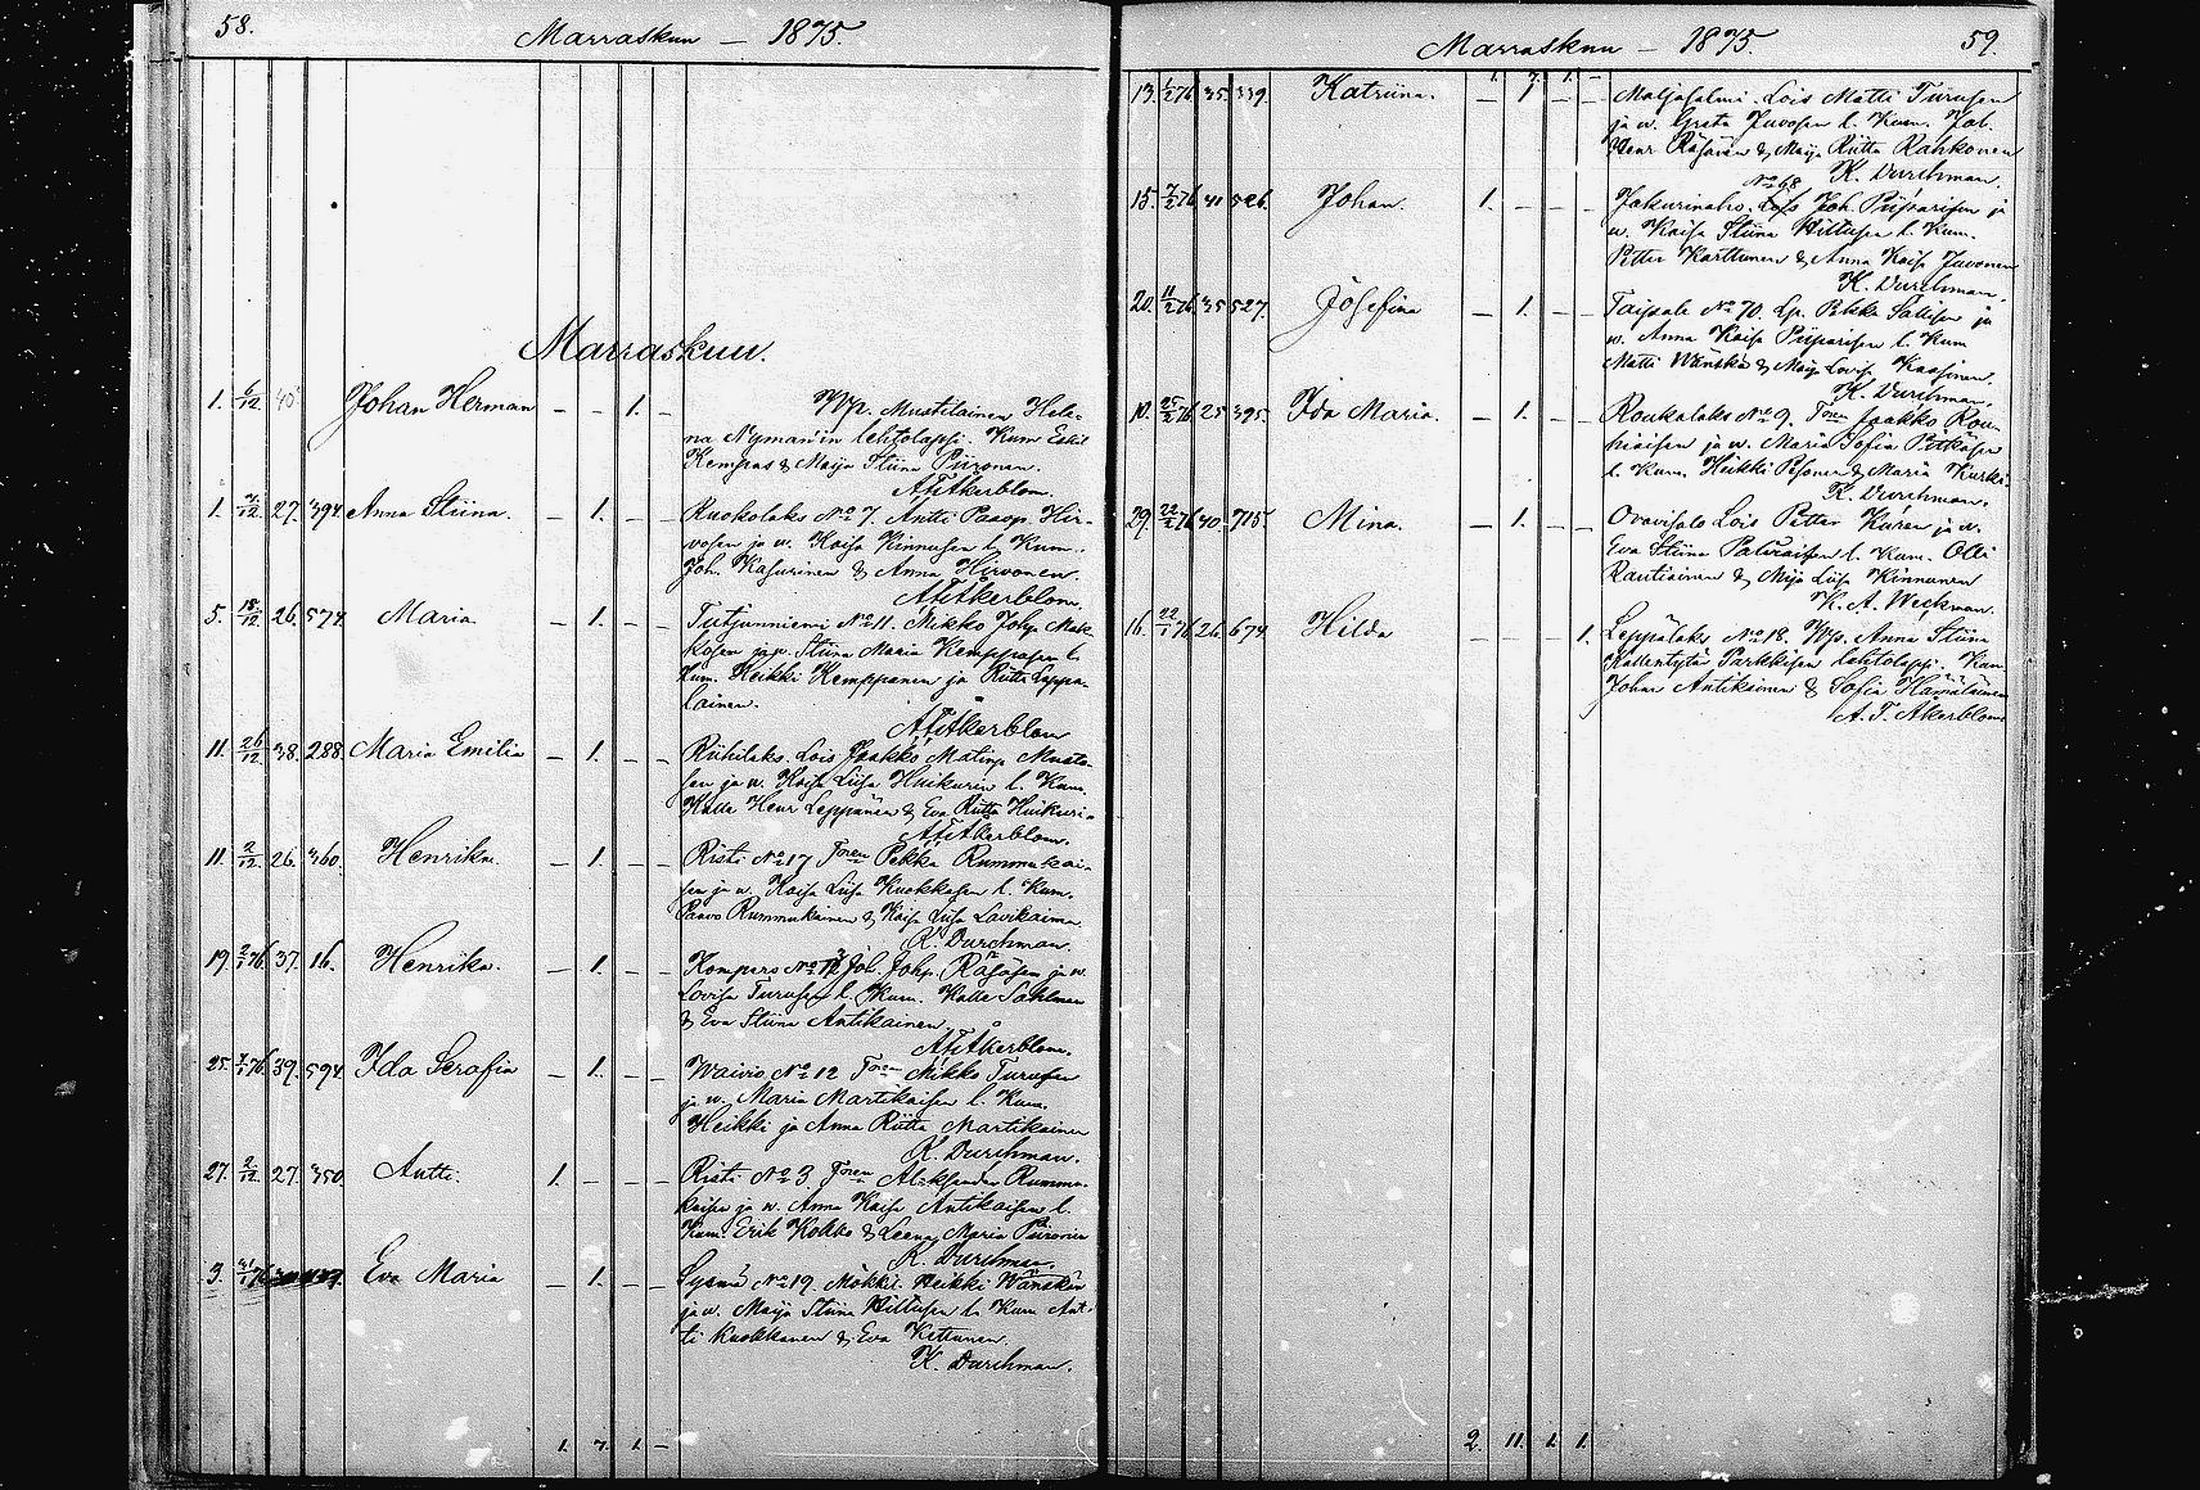 58.
Marraskuu — 1875.
Marraskuu.
1. 6/12. 40 Johan Herman — — 1. — Wp. Mustilainen Hele-
na Nyman'in lehtolapsi. Kum Eskil
Kempas & Maija Stiina Piironen.
A F Åkerblom.
1. 27. 394. Anna Stiina. — 1. — — Ruokolaks No 7. Antti Paavop. Hir-
vosen ja w. Kaisa Kinnusen l. Kum.
Joh. Kasurinen & Anna Hirvonen.
A F Åkerblom.
5. 15/12. 26. 574. Maria — 1. — — Tutjunniemi No 11. Mikko Johp. Mak-
kosen ja w. Stiina Maria Kemppasen l.
Kum. Heikki Kemppanen ja Riitta Leppä-
lainen.
A F Åkerblom
11. 26/12. 38. 288. Maria Emilia — 1. — — Riihilaks. Lois Jaakko Matinp Musto-
sen ja w. Kaisa Liisa Huikurin l. Kum.
Kalle Henr Leppänen & Eva Riitta Huikuri.
A F Åkerblom.
11. 2/12. 26. 360. Henrika. — 1. — — Risti No 17 Toren Pekka Rummukai-
sen ja w. Kaisa Liisa Kuokkasen l. Kum.
Paavo Rummukainen & Kaisa Liisa Lavikainen
K. Durchman.
19. 2/1 76. 37. 16. Henrika. — 1. — — Kompers No Joh. Johp. Räsäsen ja w.
Lovisa Turusen l. Kum. Kalle Sahlman
& Eva Stiina Antikainen.
A F Åkerblom.
25. 7/1 76. 39. 594. Ida Serafia — 1. — — Waivio No 12 Toren Mikko Turusen
ja w. Maria Martikaisen l. Kum.
Heikki ja Anna Riitta Martikainen
K. Durchman.
27. 2/12. 27. 350. Antti. 1. — — — Risti No 3. Toren Aleksander Rummu-
kaisen ja w. Anna Kaisa Antikaisen l.
Kum. Erik Kokko & Leena Maria Piironen
K. Durchman.
3. Eva Maria — 1. — — Sysmä No 19. Mökkil. Heikki Wänskän
ja w. Maija Stiina Hiltusen l. Kum Ant-
ti Kuokkanen & Eva Kettunen.
K. Durchman.
1. 7. 1. —
Marraskuu — 1875.
59.
1. 7. 1. —
13. 1/2 76. 35. 339. Katriina. — 1 — — Maljasalmi. Lois Matti Turusen
ja w. Greta Juvosen l. Kum. Joh.
Henr Räsänen & Maija Riitta Rahkonen
K. Durchman.
No 68
15. 7/2 76. 41 526. Johan. 1. — — — Jakurinaho. Lois Joh. Piiparisen ja
w. Kaisa Stiina Hiltusen l. Kum.
Petter Karttunen & Anna Kaisa Juvonen
K. Durchman.
20. 11/2 76. 35 527. Josefina — 1. — — Taipale No 70. Lp. Pekka Sallisen ja
w. Anna Kaisa Piiparisen l. Kum
Matti Wänskä & Maija Lovisa Kaasinen.
K. Durchman.
10. 25/2 76. 25 395. Ida Maria. — 1. — — Roukalaks No 9. Toren Jaakko Rou-
hiaisen ja w. Maria Sofia Pitkäsen
l. Kum. Heikki Pesonen & Maria Kurki.
K. Durchman.
29. 22/2 76. 40. 715. Mina. — 1. — — Oravisalo Lois Petter Kuren ja w.
Eva Stiina Palviaisen l. Kum. Olli
Rautiainen & Mija Liisa Kinnunen
K. A. Weckman.
16. 22/1 76. 26. 674. Hilda — — — 1. Leppälaks No 18. Wp. Anna Stiina
Kallentytär Parkkisen lehtolapsi. Kum
Johan Antikainen & Sofia Hämäläinen
A. F. Åkerblom
2. 11. 1. 1.